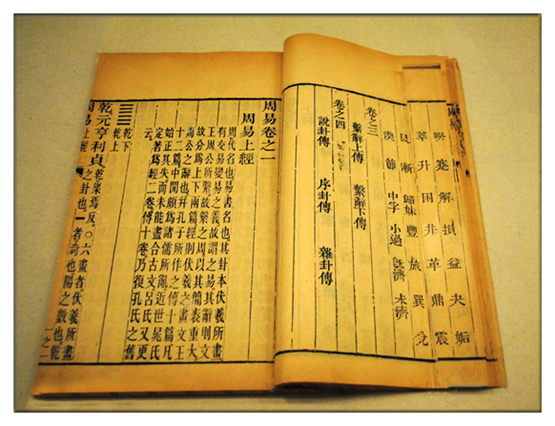 睽 蹇 解 損 益 夬 姤
萃 升 困 井 革 鼎 震
艮 漸 歸妹 豐 旅 巽 兌
渙 節 中孚 小過 旣濟 未濟
卷之三
繫辭上傳 繫辭下傳
卷之四
說卦傳 序卦傳 雜卦傳
周易卷之一
周易上經
周代名也易書名也其卦本伏羲所畫
有交易變易之義故謂之易其辭則文
王周公所繫故繫之周以其簡袠重大
故分爲上下兩篇經則伏羲之畫文王
周公之辭也并孔子所作之傳十篇凡
十二篇中間頗爲諸儒所亂近世晁氏
始正其失而未能盡合古文呂氏又更
定著爲經二卷傳十卷乃復孔氏之舊
云
乾下
乾上
乾元亨利貞 乾渠焉反○六畫者伏羲所畫
之卦也一者奇也陽之數也乾
周易上經